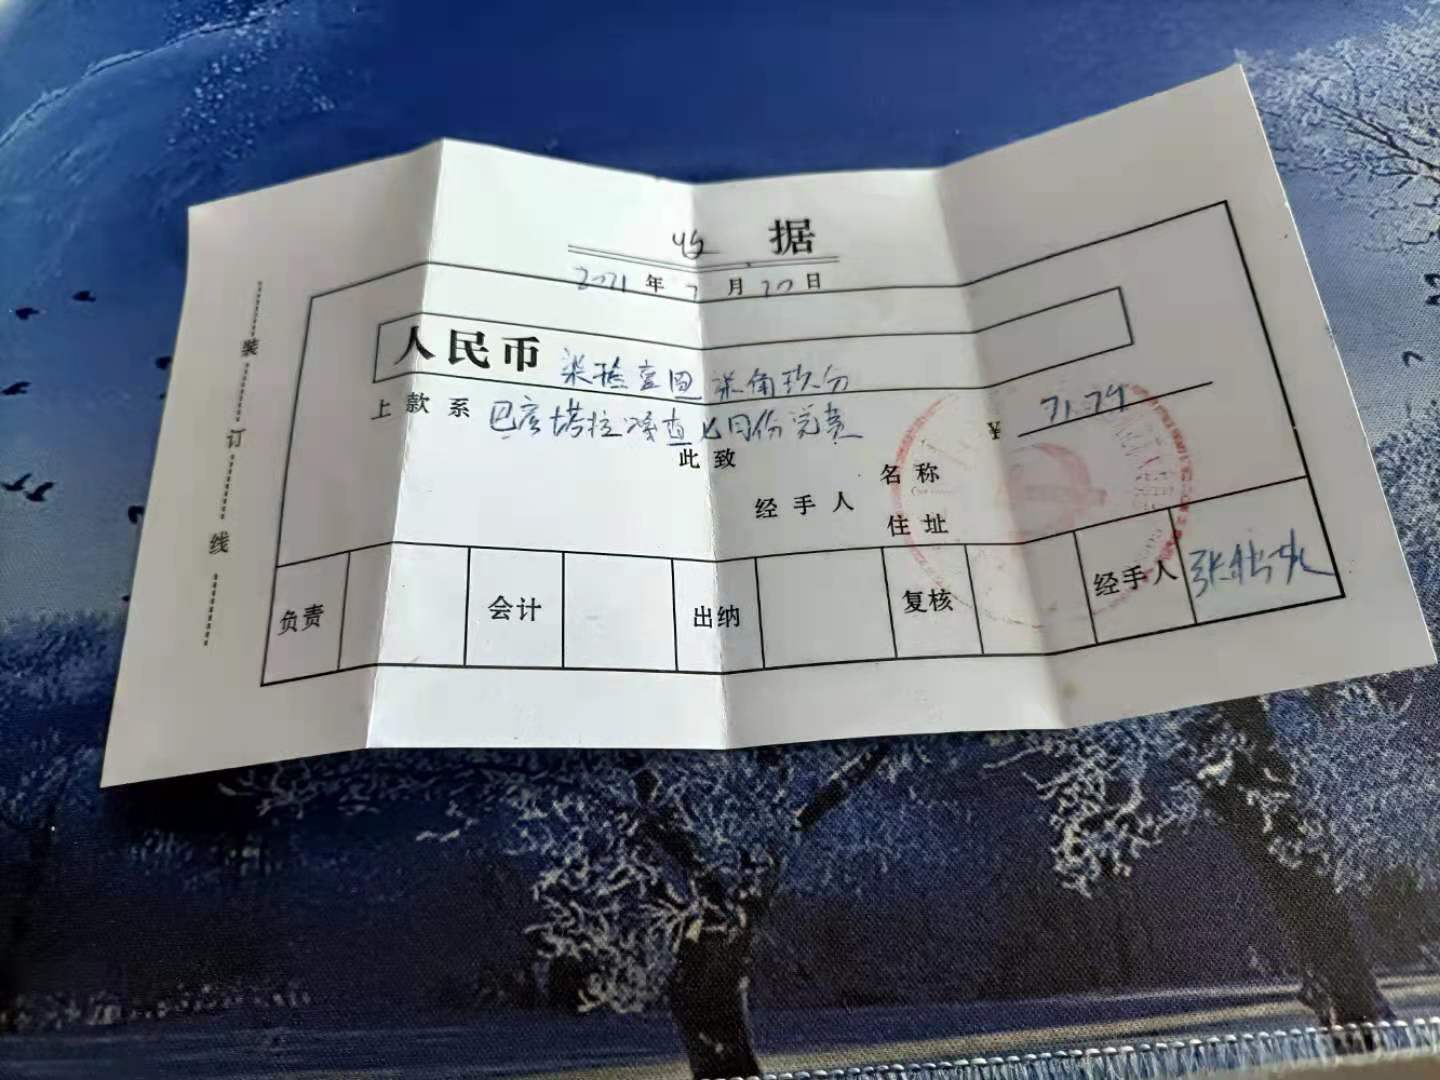 收 据
2021年7月20日
人民币 柒拾壹圆柒角玖分
上款系 巴彦塔拉嘎查七月份党费
¥ 71.79
此致
名称
经手人
住址
负责 会计 出纳 复核 经手人 张
装订线